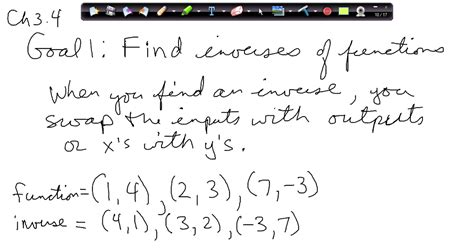 Ch 3.4
Goal 1: Find inverses of functions
When you find an inverse, you
swap the inputs with outputs
or x's with y's.
function = (1,4), (2,3), (7,-3)
inverse = (4,1), (3,2), (-3,7)